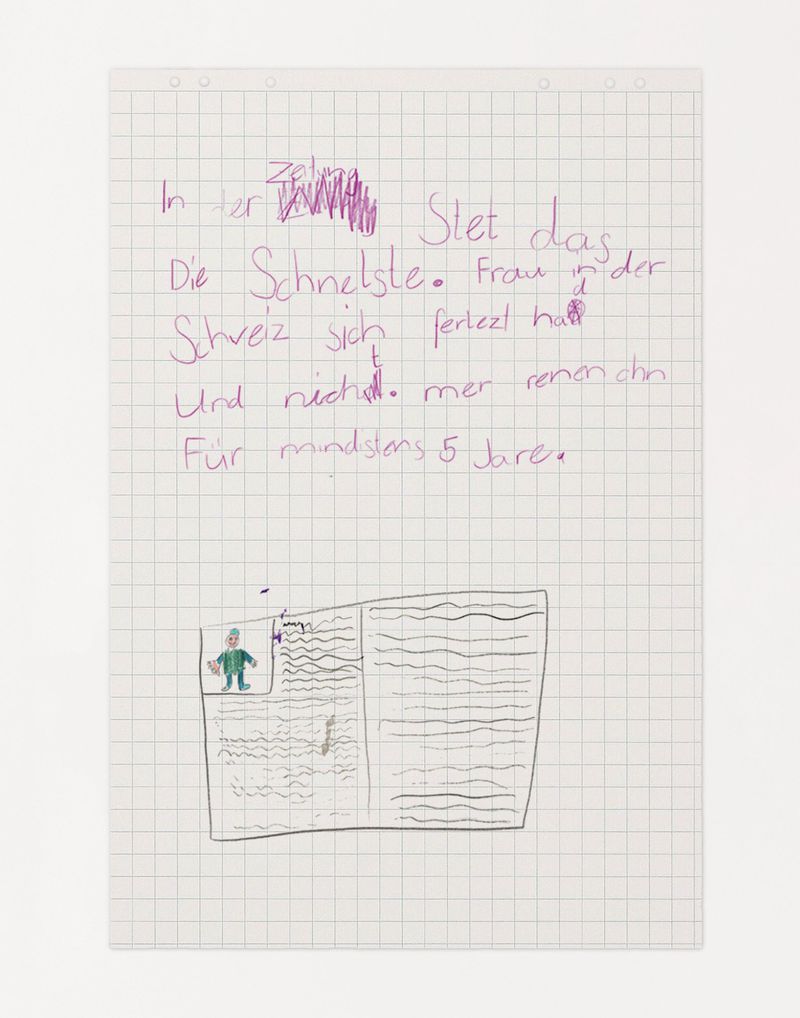 In der Zeitung Stet das
Die Schnelste. Frau in der
Schveiz sich ferlezt had
Und nicht. mer renen chn
Für mindistens 5 Jare.